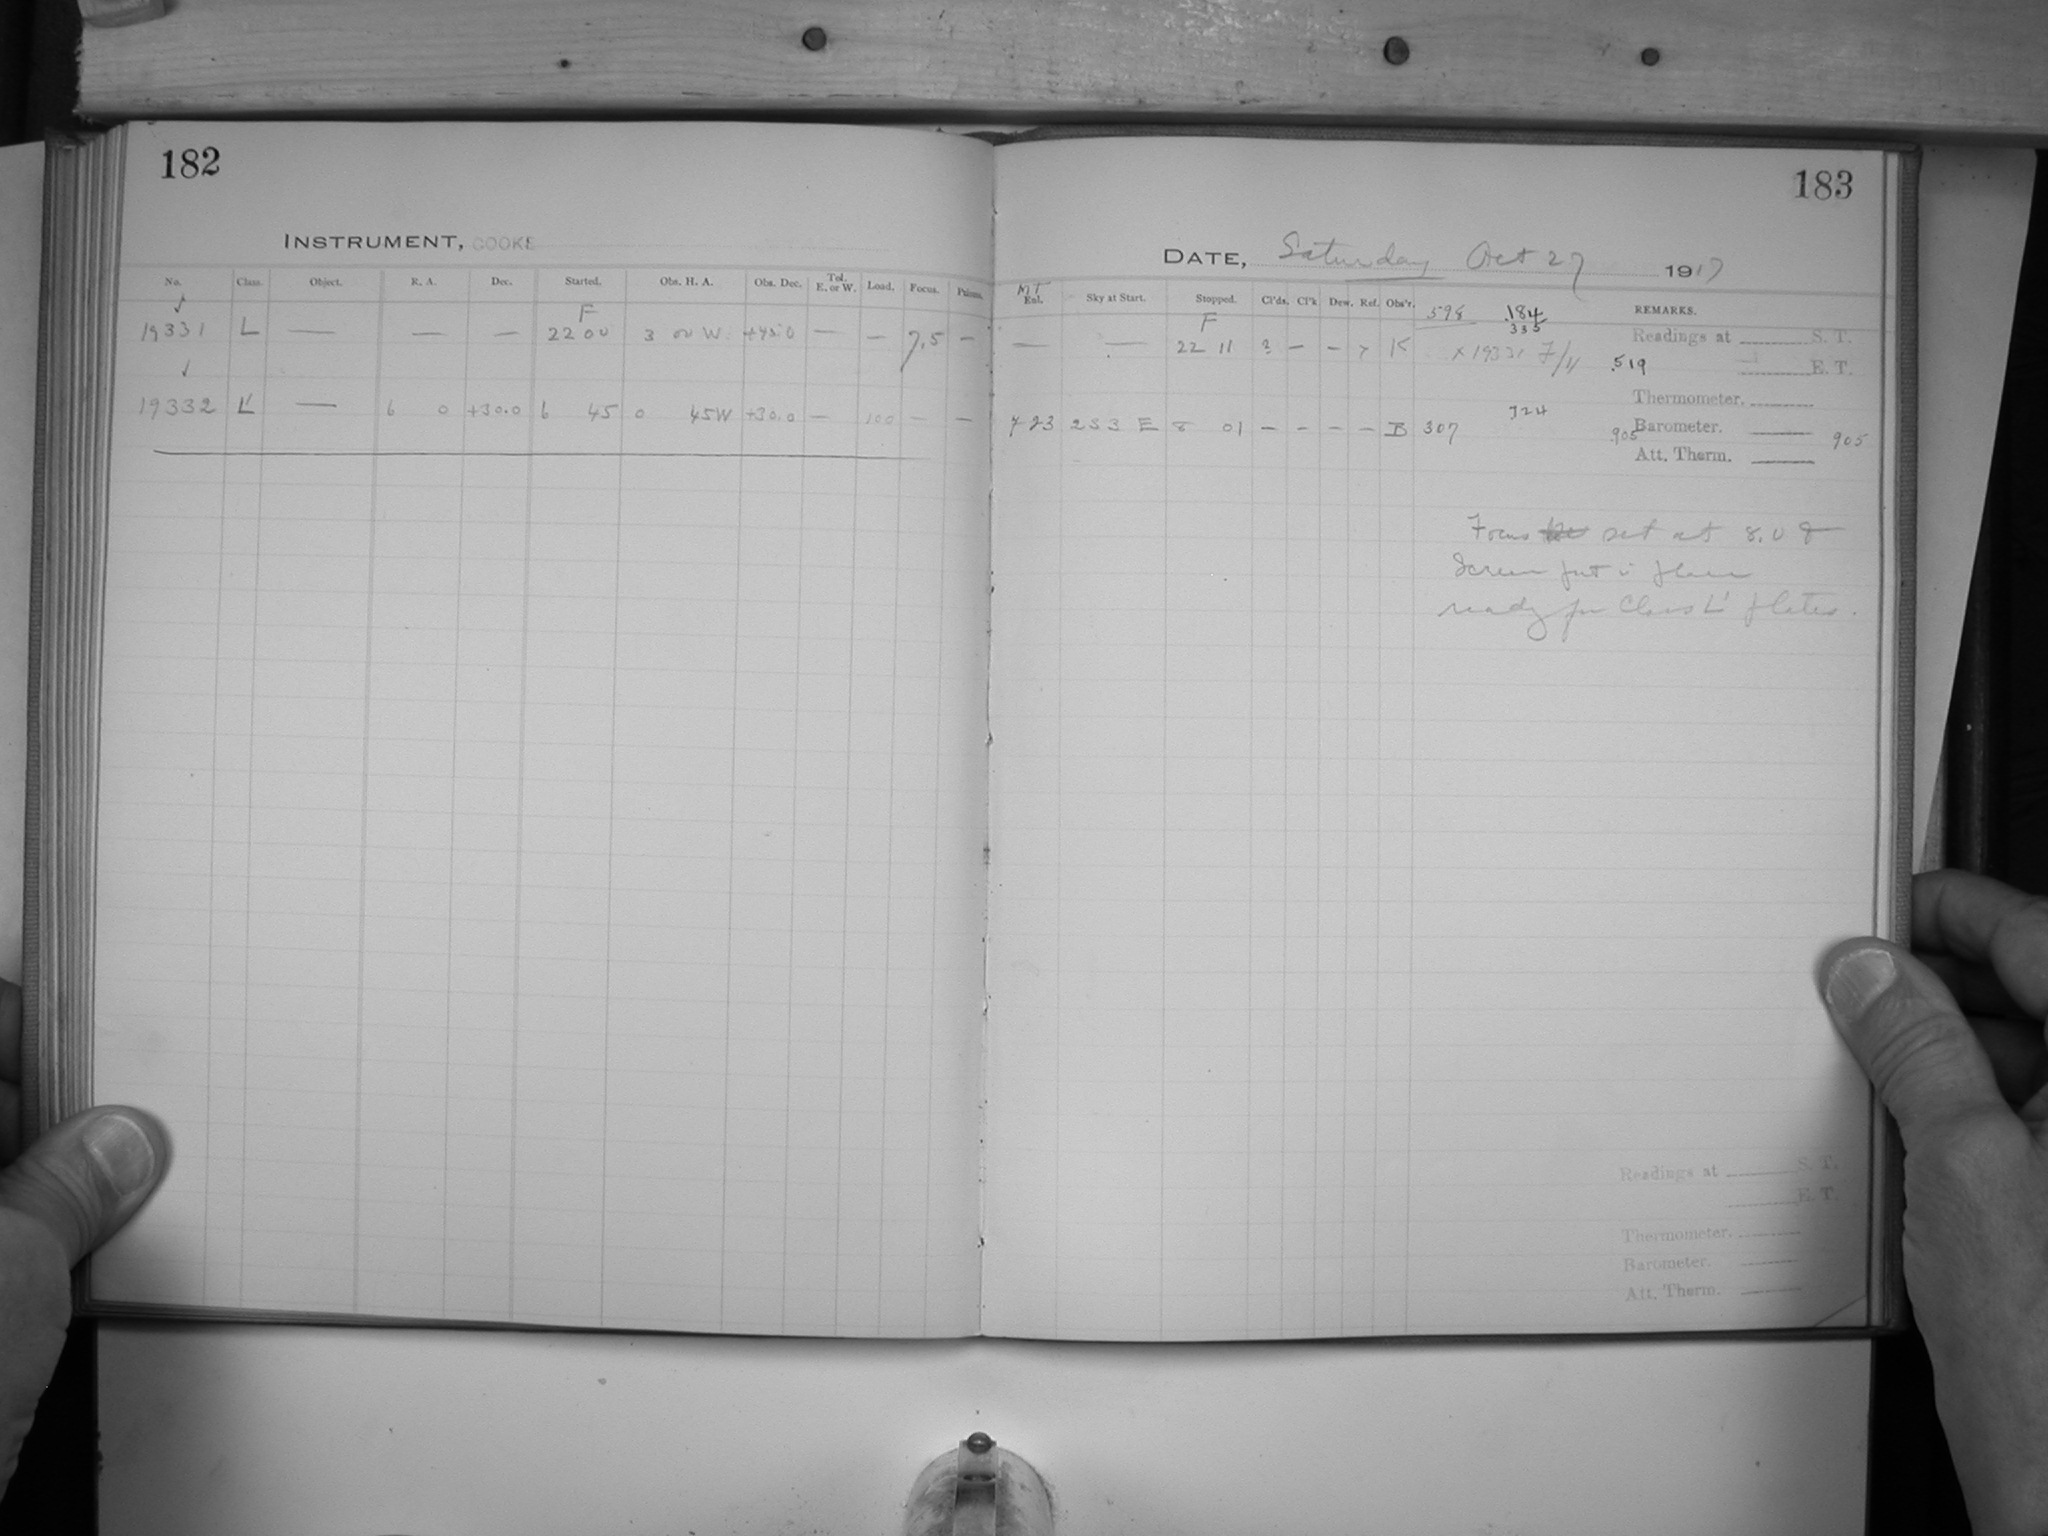 182
INSTRUMENT, COOKE
No. Class. Object. R. A. Dec. Started. Obs. H. A. Obs. Dec. Tel. E. or W. Load. Focus. Prisms.
F
19331 L — — — 22 00 3 00 W. +45.0 — — 7.5 —
19332 L' — 6 0 +30.0 6 45 0 45W +30.0 — 100 — —
183
DATE, Saturday Oct 27 1917
MT
Enl. Sky at Start. Stopped. Cl'ds. Cl'k Dew. Ref. Obs'r. 598 .184 REMARKS.
335
F
— — 22 11 ? — — > K × 19331 F/11 .519
Readings at S. T.
E. T.
Thermometer.
324
723 233 E 8 01 — — — — B 307 .905 Barometer. 905
Att. Therm.
Focus set at 8.0
Screen put in place
ready for Class L' plates.
Readings at S. T.
E. T.
Thermometer.
Barometer.
Att. Therm.